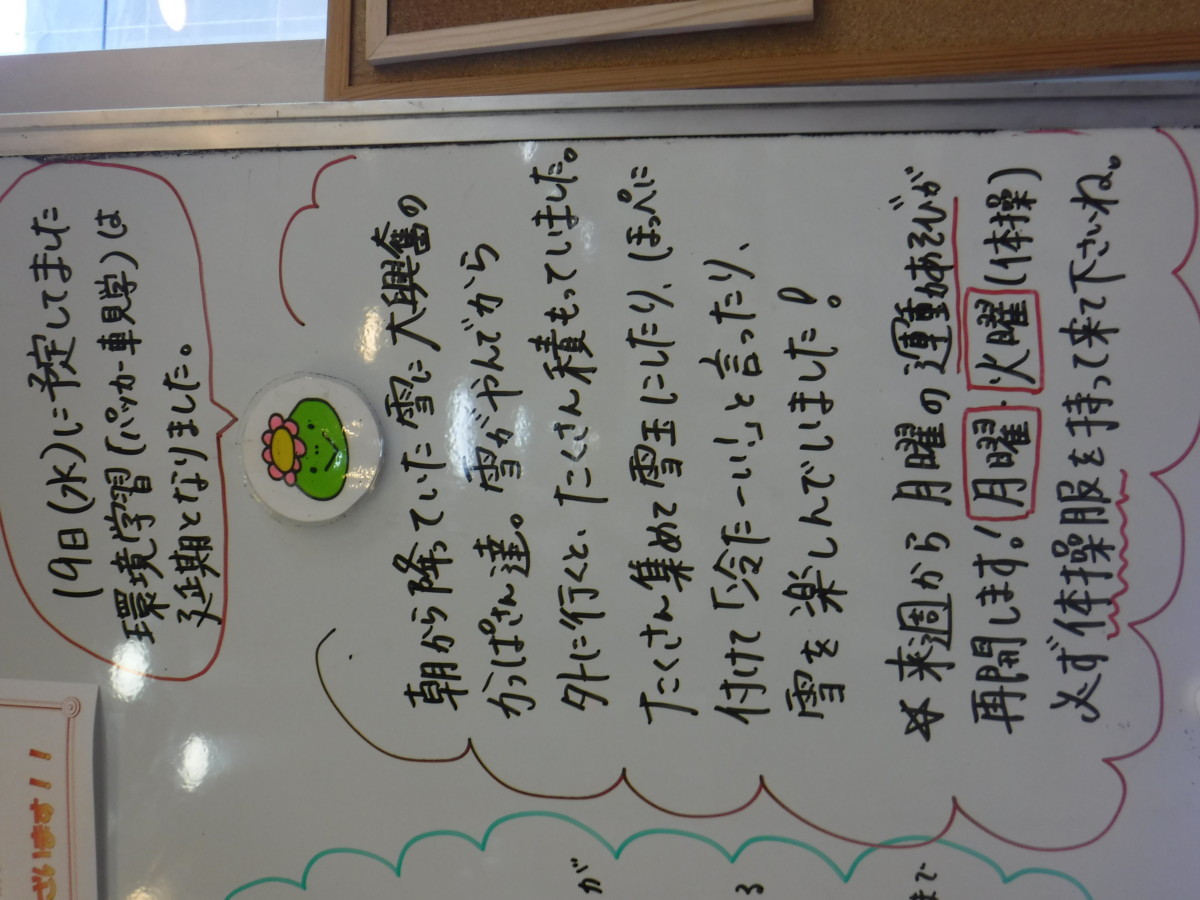 19日(水)に予定してました
環境学習(パッカー車見学)は
延期となりました。
朝から降っていた雪に大興奮の
かっぱさん達。雪がやんでから
外に行くと、たくさん積もっていました。
たくさん集めて雪玉にしたり、ほっぺに
付けて「冷たーい!」と言ったり、
雪を楽しんでいました!
☆来週から月曜の運動あそびが
再開します!月曜・火曜(体操)
必ず体操服を持って来て下さいね。
ざいます!!
が
る
まで